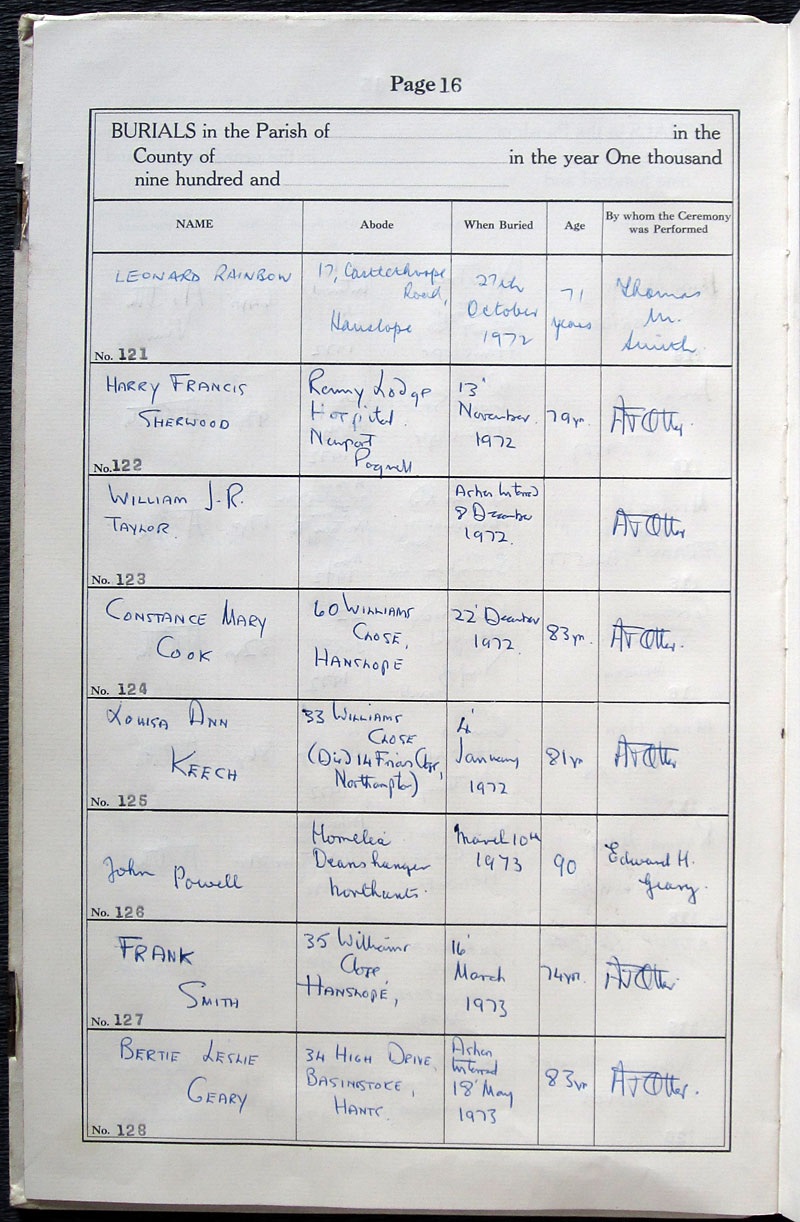 Page 16
BURIALS in the Parish of in the
County of in the year One thousand
nine hundred and
NAME
Abode
When Buried
Age
By whom the Ceremony
was Performed
LEONARD RAINBOW
17, Castlethorpe
Road,
Hanslope
27th
October
1972
71
years
Thomas
M.
Smith.
No. 121
HARRY FRANCIS
SHERWOOD
Renny Lodge
Hospital.
Newport
Pagnell
13'
November.
1972
79 yr.
No. 122
WILLIAM J. R.
TAYLOR.
Ashes Interred
8 December
1972.
No. 123
CONSTANCE MARY
COOK
60 WILLIAMS
CLOSE,
HANSLOPE
22' December
1972.
83 yr.
No. 124
LOUISA ANN
KEECH
33 WILLIAMS
CLOSE
(Died 14 Friars Close,
Northampton)
4'
January
1972
81 yr
No. 125
John Powell
Homelea
Deanshanger
Northants.
March 10th
1973
90
Edward H.
Geary.
No. 126
FRANK
SMITH
35 Williams
Close
HANSLOPE,
16'
March
1973
74 yr.
No. 127
BERTIE LESLIE
GEARY
34 HIGH DRIVE,
BASINGSTOKE,
HANTS.
Ashes
Interred
18' May
1973
83 yr
No. 128